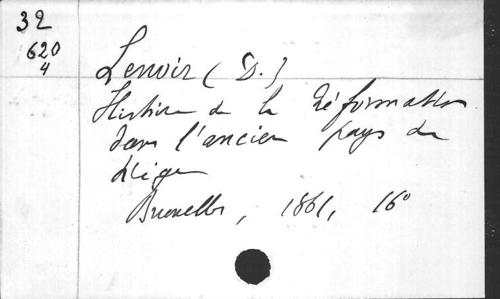 32
620
4
Lenoir (D.)
Histoire de la Réformation
dans l'ancien pays de
Liège
Bruxelles, 1861, 16°